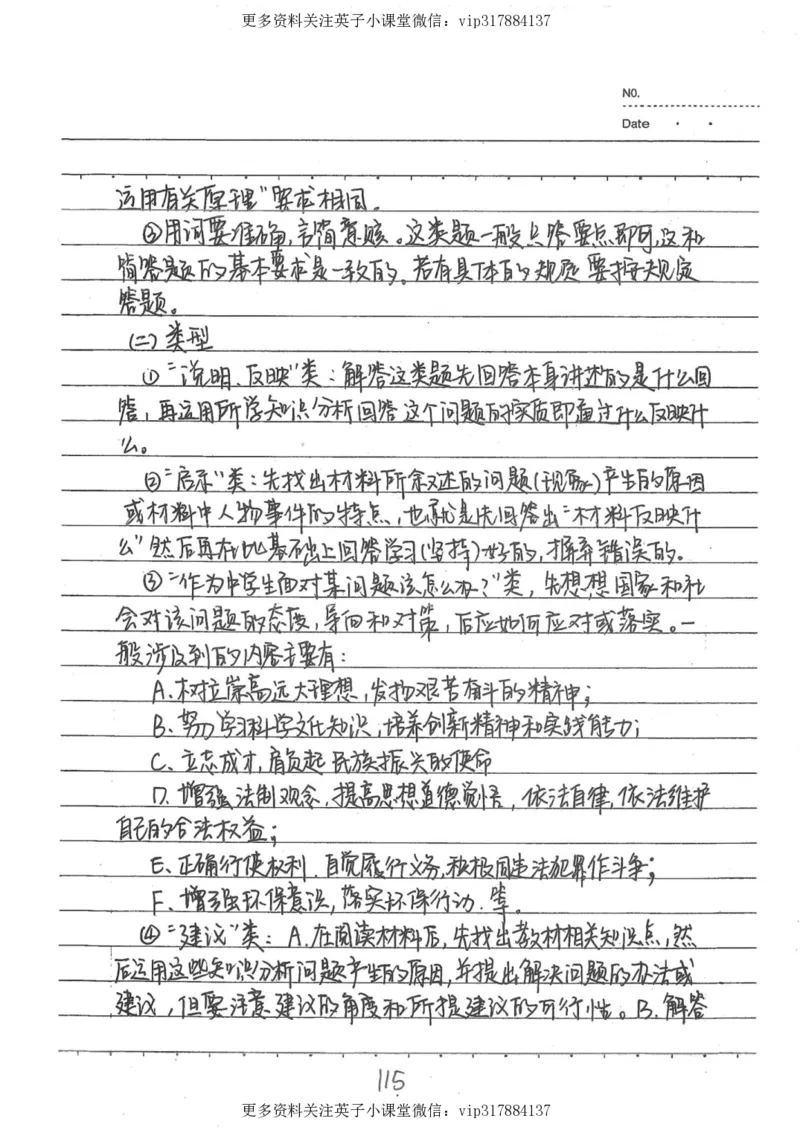 更多资料关注英子小课堂微信：vip317884137
NO.
Date
运用有关原理"要求相同。
②用词要准确,言简意赅。这类题一般只答要点即可,这和
简答题的基本要求是一致的。若有具体的规定要按规定
答题。
(二)类型
①"说明、反映"类：解答这类题先回答本身讲述的是什么回
答，再运用所学知识分析回答这个问题的实质即通过什么反映什
么。
②"启示"类：先找出材料所叙述的问题(现象)产生的原因
或材料中人物事件的特点，也就是先回答出"材料反映什
么"然后再在此基础上回答学习(坚持)好的，摒弃错误的。
③"作为中学生面对某问题该怎么办?"类，先想想国家和社
会对该问题的态度，导向和对策，后应如何应对或落实。一
般涉及到的内容主要有：
A.树立崇高远大理想，发扬艰苦奋斗的精神；
B、努力学习科学文化知识，培养创新精神和实践能力；
C、立志成才，肩负起民族振兴的使命
D.增强法制观念，提高思想道德觉悟，依法自律，依法维护
自己的合法权益；
E、正确行使权利、自觉履行义务，积极同违法犯罪作斗争；
F、增强环保意识，落实环保行动.等。
④"建议"类：A.在阅读材料后，先找出教材相关知识点，然
后运用这些知识分析问题产生的原因，并提出解决问题的办法或
建议，但要注意建议的角度和所提建议的可行性。B.解答
115
更多资料关注英子小课堂微信：vip317884137